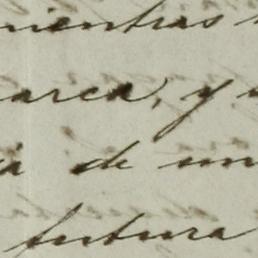 mientras
arca, y
á de un
futura